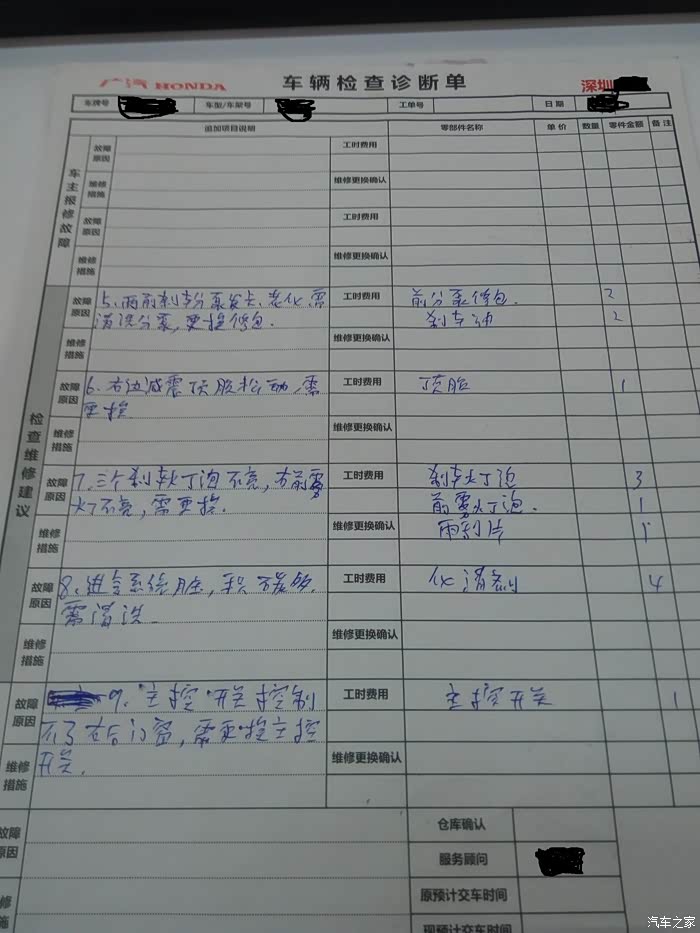 广汽 HONDA 车辆检查诊断单 深圳
车牌号 车型/车架号 工单号 日期
追加项目说明 零部件名称 单价 数量 零件金额 备注
车主报修故障
故障原因 工时费用
维修措施 维修更换确认
故障原因 工时费用
维修措施 维修更换确认
检查维修建议
故障原因 5、两前刹车分泵发卡、老化,需 工时费用 前分泵修包. 2
清洗分泵,更换修包. 刹车油 2
维修措施 维修更换确认
故障原因 6、右边减震顶胶松动,需 工时费用 顶胶 1
更换
维修措施 维修更换确认
故障原因 7、三个刹车灯泡不亮,右前雾 工时费用 刹车灯泡 3
灯不亮,需更换. 前雾灯泡. 1
维修措施 维修更换确认 雨刮片 1
故障原因 8、进气系统脏,积碳多, 工时费用 化清剂 4
需清洗
维修措施 维修更换确认
故障原因 9、主控开关控制 工时费用 主控开关 1
不了左后门窗,需更换主控
维修措施 开关. 维修更换确认
故障原因 仓库确认
服务顾问
维修措施 原预计交车时间
现预计交车时间
汽车之家